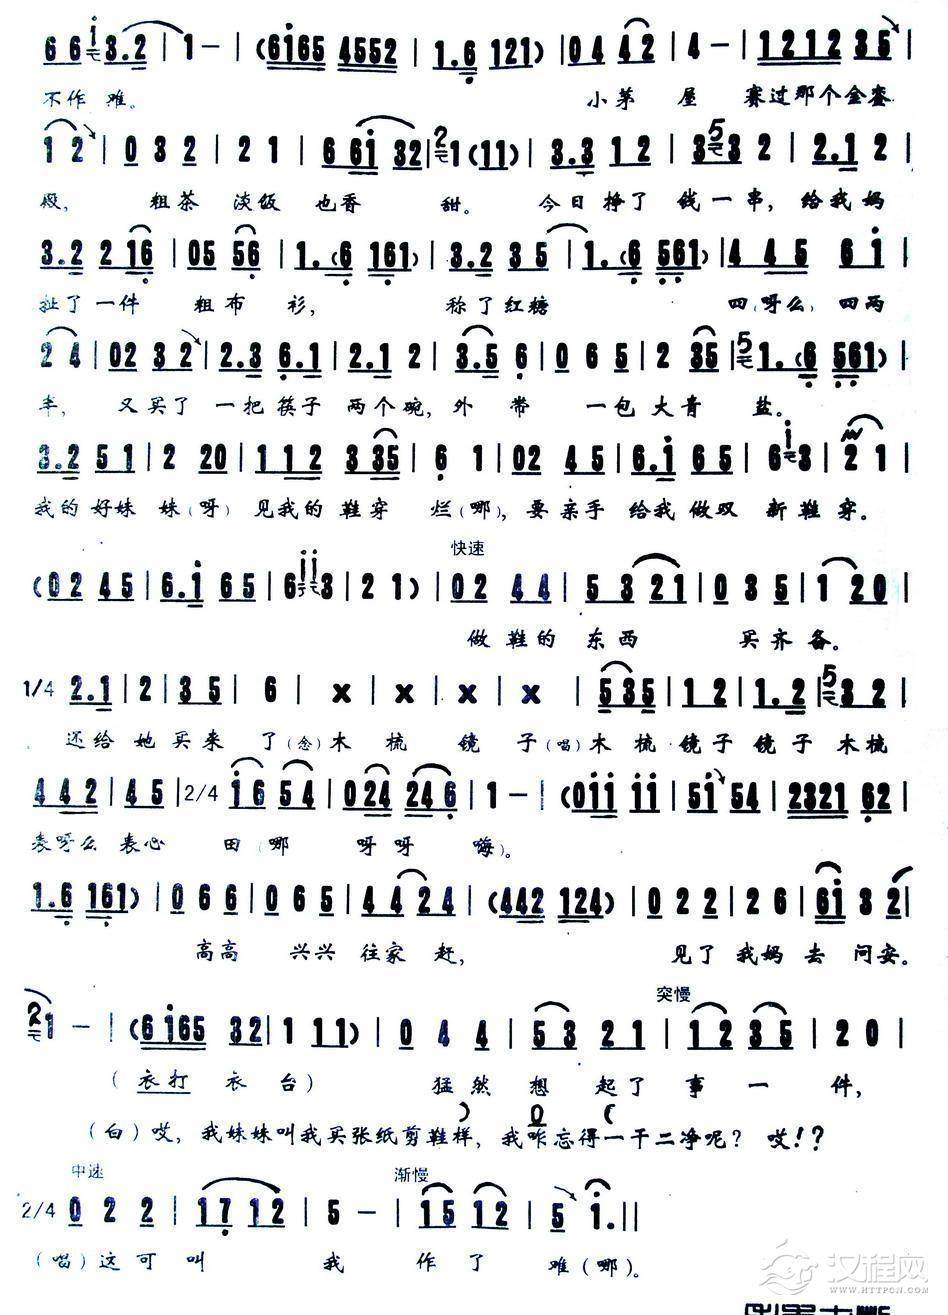 6 6 3.2 | 1 — | (6i65 4552 | 1.6 121) | 04 442 | 4 — | 1212 35 |
不作难。 小茅屋 赛过那个金銮
1 2 | 0 3 2 | 2 1 | 6 6i 32 | 1 (11) | 3.3 1 2 | 3 32 2 | 2.1 2 |
殿， 粗茶 淡饭 也香 甜。 今日挣了 钱一串，给我妈
3.2 2 16 | 05 56 | 1.(6 161) | 3.2 35 | 1.(6 561) | 4 45 6 i |
扯了一件 粗布 衫， 称了红糖 四(呀么)四两
2 4 | 02 32 | 2.3 6.1 | 2.1 2 | 3.5 6 | 0 6 5 | 2 35 | 1.(6 561) |
半， 又买了 一把筷子 两个碗，外 带 一包大青 盐。
3.2 51 | 2 20 | 112 335 | 6 1 | 02 45 | 6.i 65 | 6 3 | 2 1 |
我的好妹 妹(呀)见我的鞋穿 烂(哪)，要亲手 给我做双 新鞋穿。
快速
(02 45 | 6.i 65 | 6 3 | 2 1) | 02 44 | 5 321 | 0 3 5 | 1 20 |
做鞋的 东西 买齐备。
1/4 2.1 | 2 | 35 | 6 | x | x | x | x | 535 | 12 | 1.2 | 32 |
还给她买来了(念)木梳 镜子(唱)木梳镜子镜子木梳
442 | 45 | 2/4 i6 54 | 024 246 | 1 — | (0ii ii | 5i 54 | 2321 62 |
表呀么表心 田(哪 呀呀 嗨)。
1.6 161) | 0 6 6 | 0 6 5 | 4 4 2 4 | (442 124) | 0 2 2 | 2 6 | 6i 3 2 |
高高 兴兴 往家 赶， 见了我妈去 问安。
突慢
1 — | (6i65 32 | 1 11) | 0 4 4 | 53 21 | 12 35 | 2 0 |
(衣打 衣台) 猛然想 起了事一件，
(白)哎，我妹妹叫我买张纸剪鞋样，我咋忘得一干二净呢？哎！？
中速 渐慢
2/4 0 2 2 | 17 12 | 5 — | 15 12 | 5 i. ||
(唱)这可叫 我 作了 难(哪)。
汉程网
WWW.HTTPCN.COM